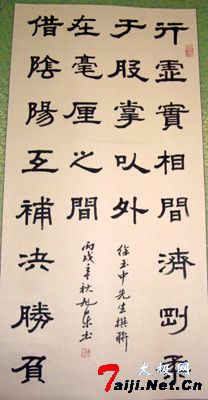 行虛實相間濟剛柔
于股掌以外
徐玉中先生撰聯
在毫厘之間
丙戌年秋
借陰陽互補決勝負
太极网
7aiji.Net.Cn